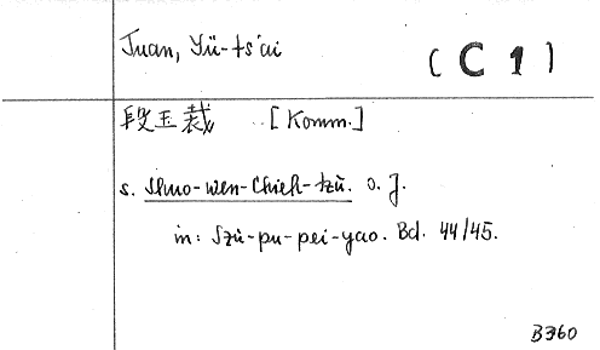 Tuan, Yü-ts'ai
( C 1 )
段玉裁 .. [Komm.]
s. Shuo-wen-Chieh-tzŭ. o. J.
in: Szŭ-pu-pei-yao. Bd. 44/45.
B360